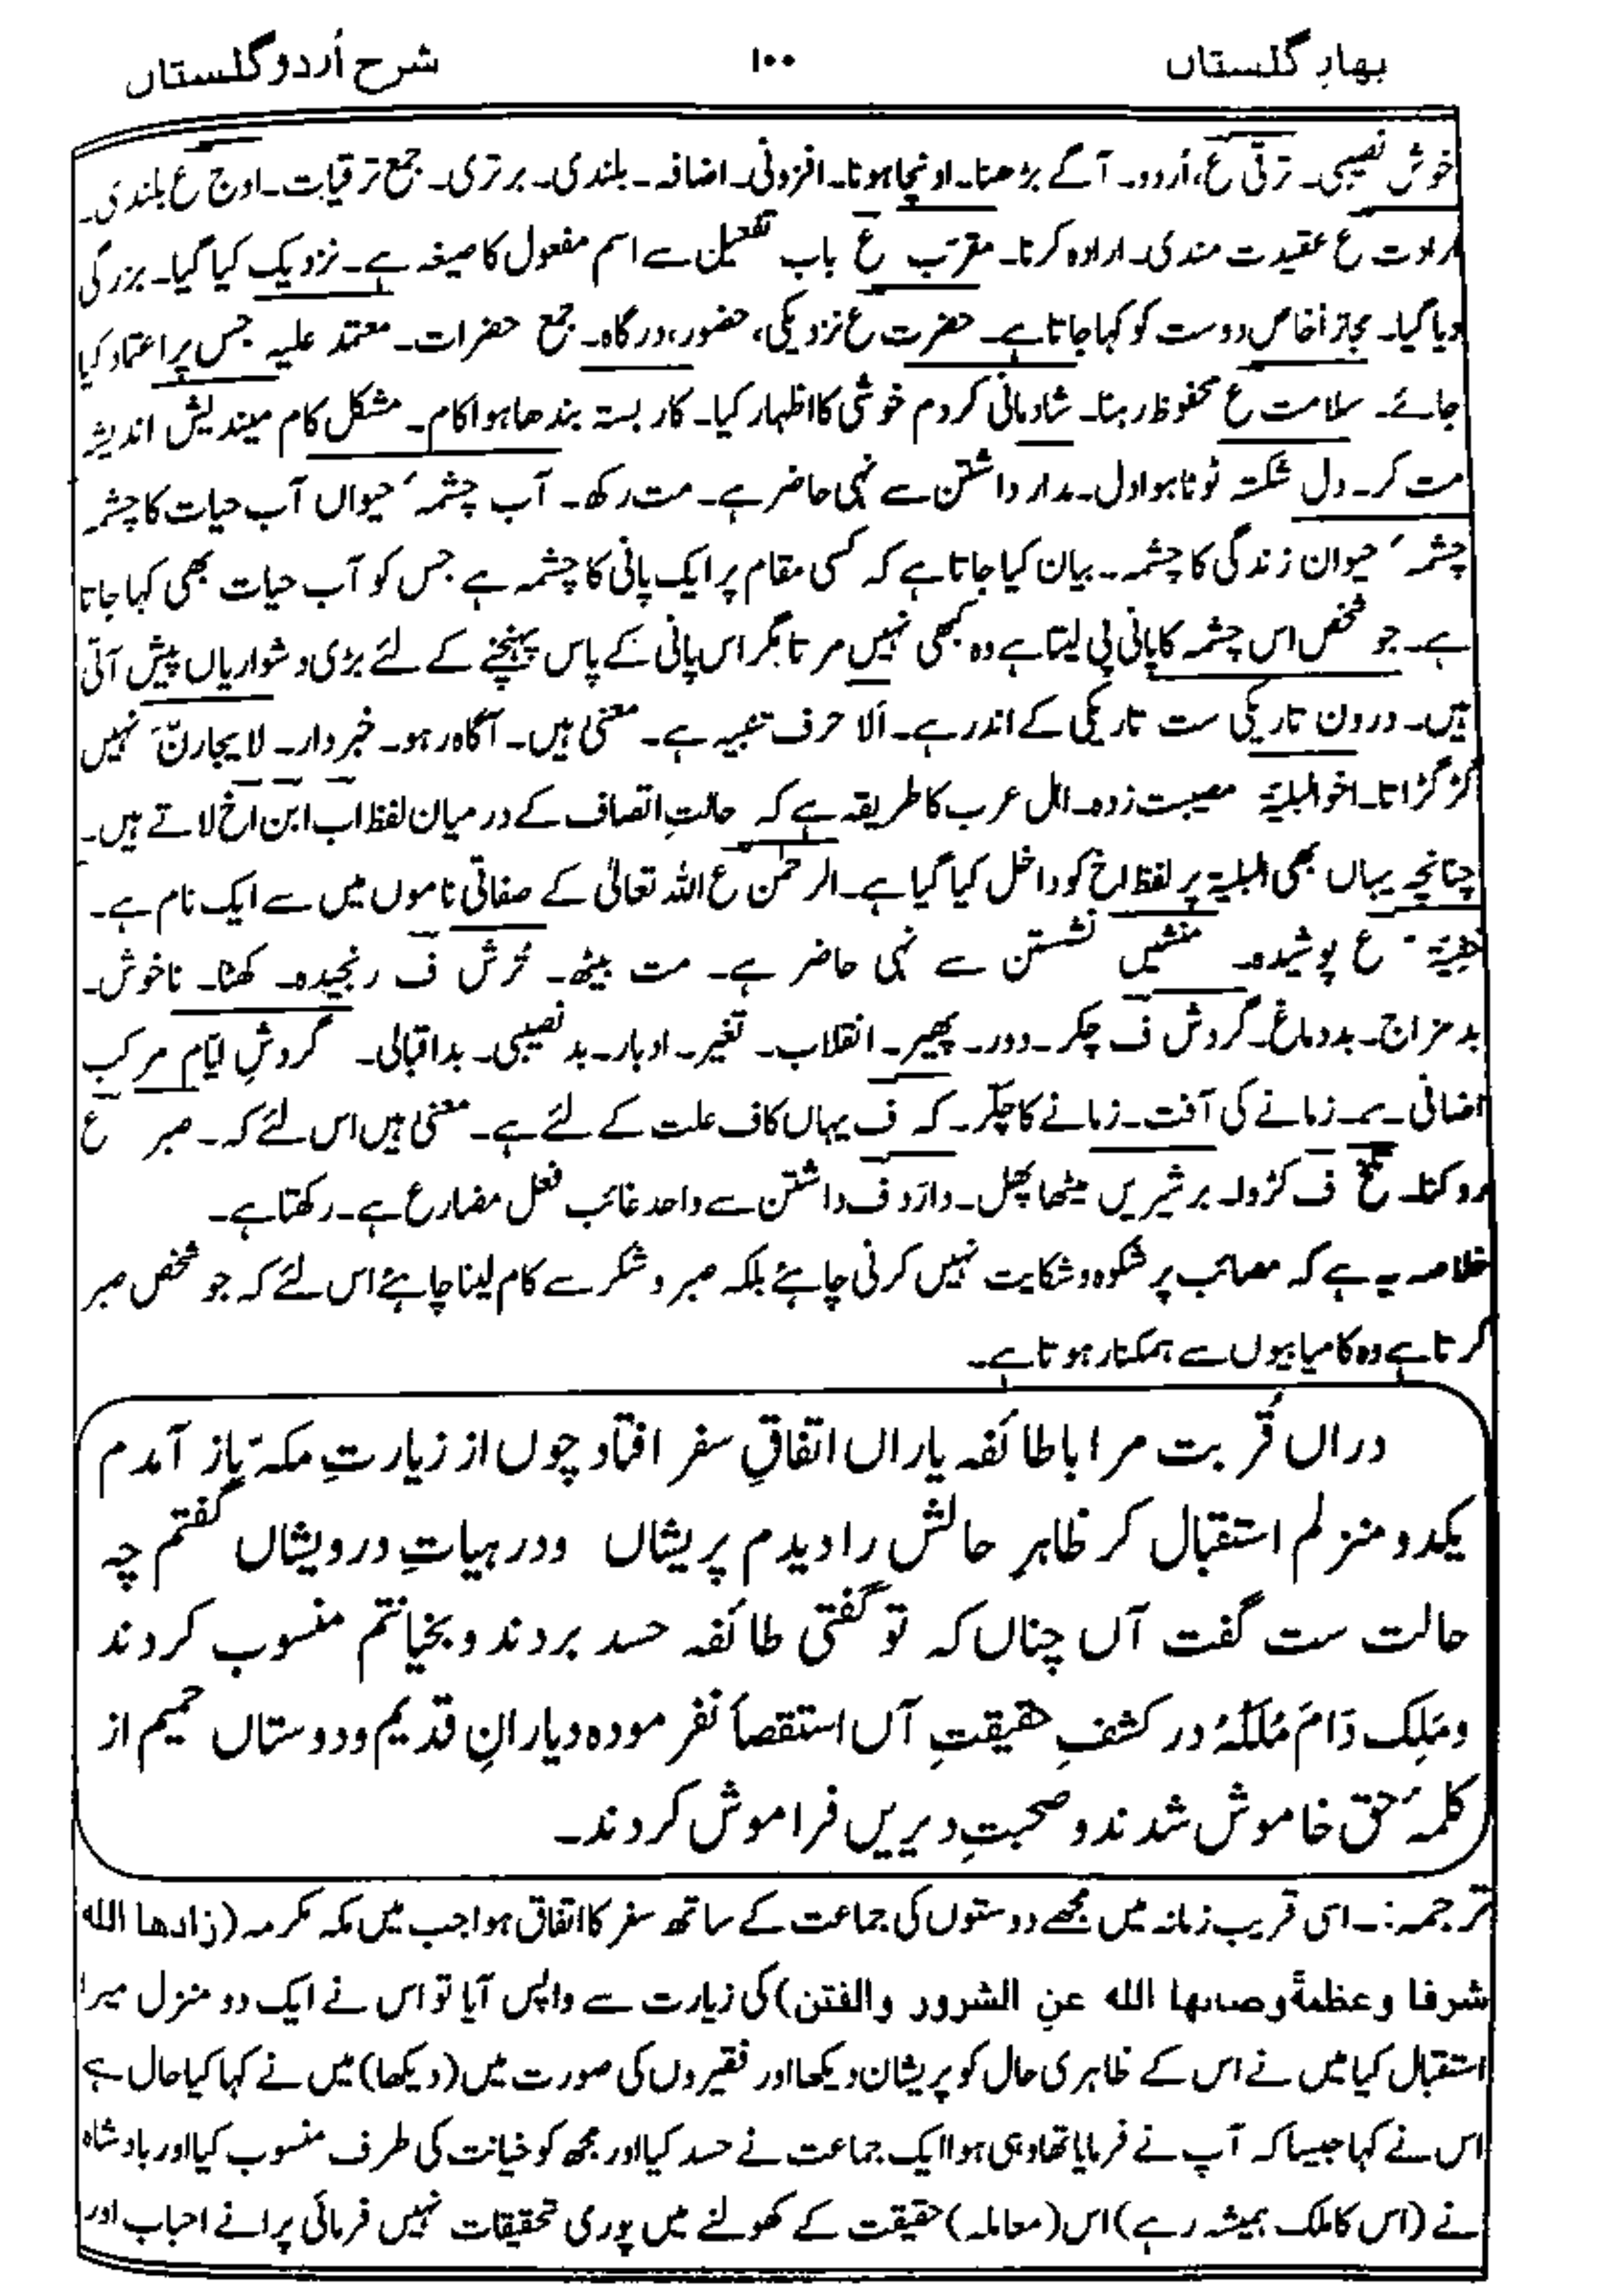 بهارِ گلستاں ۱۰۰ شرح اُردو گلستاں
خوش نصیبی۔ ترقی ع، اُردو۔ آگے بڑھنا۔ اونچا ہونا۔ افزونی۔ اضافہ۔ بلندی۔ برتری۔ جمع ترقیات۔ اوج ع بلندی۔
ارادت ع عقیدت مندی۔ ارادہ کرنا۔ مقرّب ع باب تفعیل سے اسم مفعول کا صیغہ ہے۔ نزدیک کیا گیا۔ بزرگی
دیا گیا۔ مجازاً خاص دوست کو کہا جاتا ہے۔ حضرت ع نزدیکی، حضور، درگاہ۔ جمع حضرات۔ معتمد علیہ جس پر اعتماد کیا
جائے۔ سلامت ع محفوظ رہنا۔ شادمانی کردم خوشی کا اظہار کیا۔ کار بستہ بندھا ہوا کام۔ مشکل کام میندیش اندیشہ
مت کر۔ دل شکستہ ٹوٹا ہوا دل۔ مدار داشتن سے نہی حاضر ہے۔ مت رکھ۔ آب چشمۂ حیواں آب حیات کا چشمہ
چشمۂ حیوان زندگی کا چشمہ۔ بیان کیا جاتا ہے کہ کسی مقام پر ایک پانی کا چشمہ ہے جس کو آب حیات بھی کہا جاتا
ہے۔ جو شخص اس چشمہ کا پانی پی لیتا ہے وہ کبھی نہیں مرتا مگر اس پانی کے پاس پہنچنے کے لئے بڑی دشواریاں پیش آتی
ہیں۔ درون تاریکی ست تاریکی کے اندر ہے۔ اَلا حرف تنبیہ ہے۔ معنیٰ ہیں۔ آگاہ رہو۔ خبردار۔ لا یجارنّ نہیں
گڑگڑاتا۔ اخوالبلیۃ مصیبت زدہ۔ اہل عرب کا طریقہ ہے کہ حالتِ اتصاف کے درمیان لفظ اب ابن اخ لاتے ہیں۔
چنانچہ یہاں بھی البلیۃ پر لفظ اخ کو داخل کیا گیا ہے۔ الرحمٰن ع اللہ تعالیٰ کے صفاتی ناموں میں سے ایک نام ہے۔
خفیۃ ع پوشیدہ۔ منشیں نشستن سے نہی حاضر ہے۔ مت بیٹھ۔ تُرش ف رنجیدہ۔ کھٹا۔ ناخوش۔
بد مزاج۔ بد دماغ۔ گردش ف چکر۔ دور۔ پھیر۔ انقلاب۔ تغیر۔ ادبار۔ بد نصیبی۔ بد اقبالی۔ گردشِ ایّام مرکب
اضافی ہے۔ زمانے کی آفت۔ زمانے کا چکّر۔ کہ ف یہاں کاف علت کے لئے ہے۔ معنیٰ ہیں اس لئے کہ۔ صبر ع
روکنا۔ تلخ ف کڑوا۔ بر شیریں میٹھا پھل۔ دارَد ف داشتن سے واحد غائب فعل مضارع ہے۔ رکھتا ہے۔
خلاصہ یہ ہے کہ مصائب پر شکوہ و شکایت نہیں کرنی چاہئے بلکہ صبر و شکر سے کام لینا چاہئے اس لئے کہ جو شخص صبر
کرتا ہے وہ کامیابیوں سے ہمکنار ہوتا ہے۔
دراں قُربت مرا باطائفہ یاراں اتفاقِ سفر افتاد چوں از زیارتِ مکہ باز آمدم
یکدو منزلم استقبال کر ظاہرِ حالش را دیدم پریشاں ودر ہیاتِ درویشاں گفتم چہ
حالت ست گفت آں چناں کہ تو گفتی طائفہ حسد بردند و بخیانتم منسوب کردند
ومَلِک دَامَ مُلکُہُ در کشفِ حقیقتِ آں استقصاً نفرمودہ ویارانِ قدیم ودوستاں حمیم از
کلمۂ حق خاموش شدند و صحبتِ دیریں فراموش کردند۔
ترجمہ:۔ اسی قریب زمانہ میں مجھے دوستوں کی جماعت کے ساتھ سفر کا اتفاق ہوا جب میں مکہ مکرمہ (زادها الله
شرفا وعظمةً وصانها الله عنِ الشرور والفتن) کی زیارت سے واپس آیا تو اس نے ایک دو منزل میرا
استقبال کیا میں نے اس کے ظاہری حال کو پریشان دیکھا اور فقیروں کی صورت میں (دیکھا) میں نے کہا کیا حال ہے
اس نے کہا جیسا کہ آپ نے فرمایا تھا وہی ہوا ایک جماعت نے حسد کیا اور مجھ کو خیانت کی طرف منسوب کیا اور بادشاہ
نے (اس کا ملک ہمیشہ رہے) اس (معاملہ) حقیقت کے کھولنے میں پوری تحقیقات نہیں فرمائی پرانے احباب اور